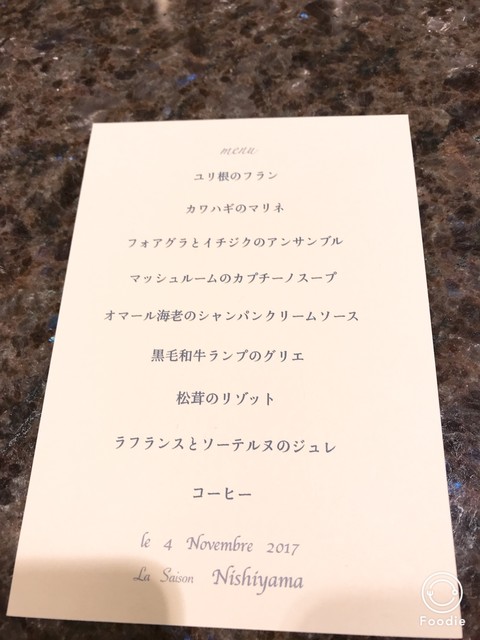 menu
ユリ根のフラン
カワハギのマリネ
フォアグラとイチジクのアンサンブル
マッシュルームのカプチーノスープ
オマール海老のシャンパンクリームソース
黒毛和牛ランプのグリエ
松茸のリゾット
ラフランスとソーテルヌのジュレ
コーヒー
le 4 Novembre 2017
La Saison Nishiyama
Foodie